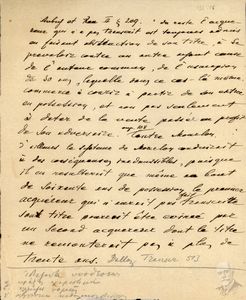 Aubry et Rau II § 209. - du reste l'acqué-
reur, qui n'a pas transcrit est toujours admis
en faisant abstraction de son titre, à se
prévaloir contre un autre ayant cause
de l'auteur commun, de l'usucapion
de 30 ans, laquelle dans ce cas là même
commence à courir à partir de son entrée
en possession, et non pas seulement
à dater de la vente passée au profit
de son adversaire. Contra Mourlon
d'ailleurs le système de Mourlon conduirait
à des conséquences inadmissibles, puisque
il en résulterait que même au bout
de soixante ans de possession, le premier
acquéreur qui n'aurait pas transcrit
son titre pourrait être évincé par
un second acquéreur dont le titre
ne remonterait pas à plus de
trente ans. Dalloz Transcr 513